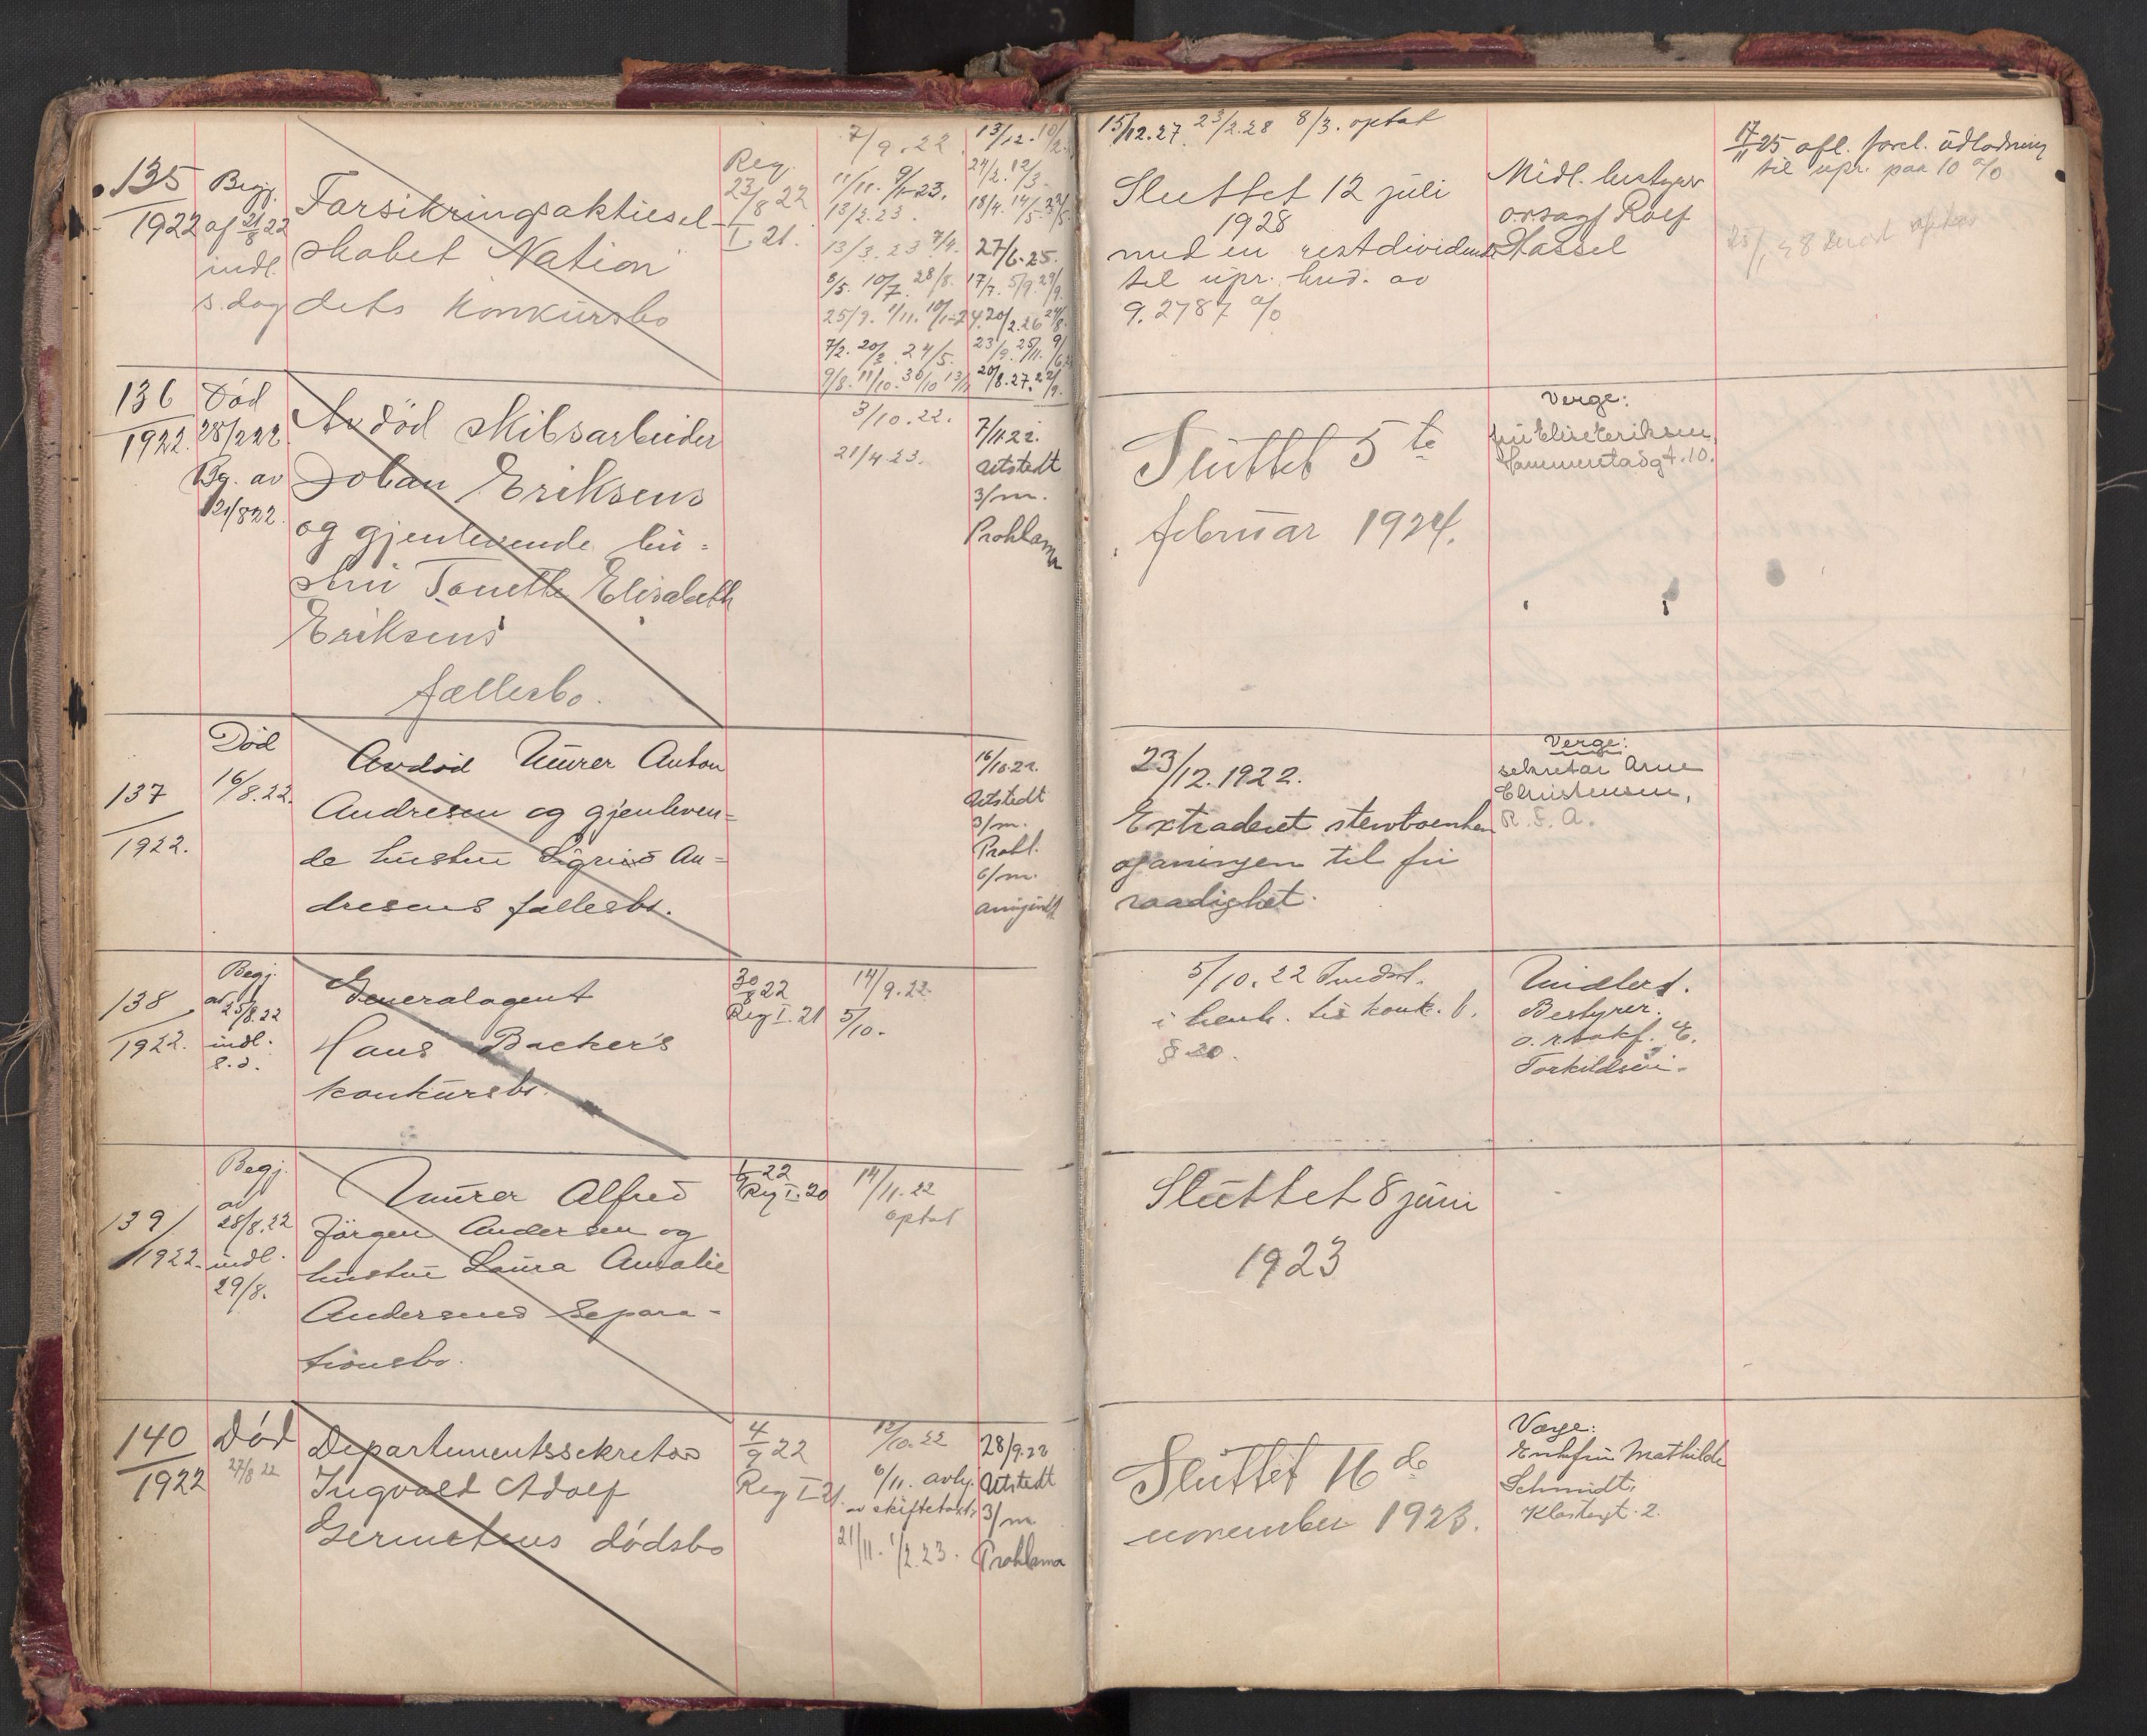 135
1922
Begj.
af 21/8 22
indl.
s. dag
Forsikringsaktiesel-
skabet Nation
dets Konkursbo
Reg.
23/8 22
I. 21.
7/9.22
11/11. 9/1-23.
13/2.23.
13/3.23 7/4.
8/5. 10/7. 28/8.
25/9. 1/11. 10/1-24
7/2. 20/2. 24/5.
9/8. 11/10. 30/10 13/11
13/12. 10/2.
24/2. 12/3.
18/4. 14/5.
27/6-25.
17/7. 5/9. 29/9.
20/2.26 24/8.
23/9. 25/11.
20/8.27. 22/9.
15/12.27. 23/2.28 8/3. optat
Sluttet 12 juli
1928
med en restdividende
til upr. kred. av
9.2787 %
Midl. bestyrer
o.r.sagf Rolf
Hassel
17/11 25 afl. forel. udlodning
til upr. paa 10 %
136
1922.
Død
28/7 22
Bg. av
21/8 22.
Avdöd skibsarbeider
Johan Eriksens
og gjenlevende hu-
stru Tonette Elisabeth
Eriksens
fællesbo.
3/10.22.
21/4.23.
7/11.22.
Utstedt
3/m.
Proklama
Sluttet 5te
februar 1924.
Verge:
fru Elise Eriksen,
137
1922.
Død
16/8.22.
Avdöd Murer Anton
Andresen og gjenleven-
de hustru Sigrid An-
dresens fællesbo.
16/10.22.
Utstedt
3/m.
Prokl.
6/m.
23/12.1922.
Extraderet
til fri
raadighet.
Verge:
sekretær Arne
Christensen,
R. F. A.
138
1922.
Begj.
av
25/8.22
indl.
s.d.
Generalagent
Hans Backer's
konkursbo.
30/8 22
Reg I. 21
14/9.22.
5/10.
5/10.22 Indst.
i henh. til konk. l.
§ 20.
Midlert.
Bestyrer.
o.r.sakf. E.
Torkildsen.
139/
1922.
Begj.
av
28/8.22
indl.
29/8.
Murer Alfred
Jörgen Andersen og
hustru Laura Amalie
Andersens Separa-
tionsbo.
1/9 22
Reg I. 20
14/11.22
optat
Sluttet 8 juni
1923
140
1922
Död
27/8 22
Departementssekretær
Ingvald Adolf
dödsbo
4/9 22
Reg I 21.
12/10.22
6/11. avh.
21/11. 1/2.23.
28/9.22
Utstedt
3/m
Proklama
Sluttet 16de
november 1923.
Værge:
Enkefru Mathilde
Schmidt,
Klostergt. 2.